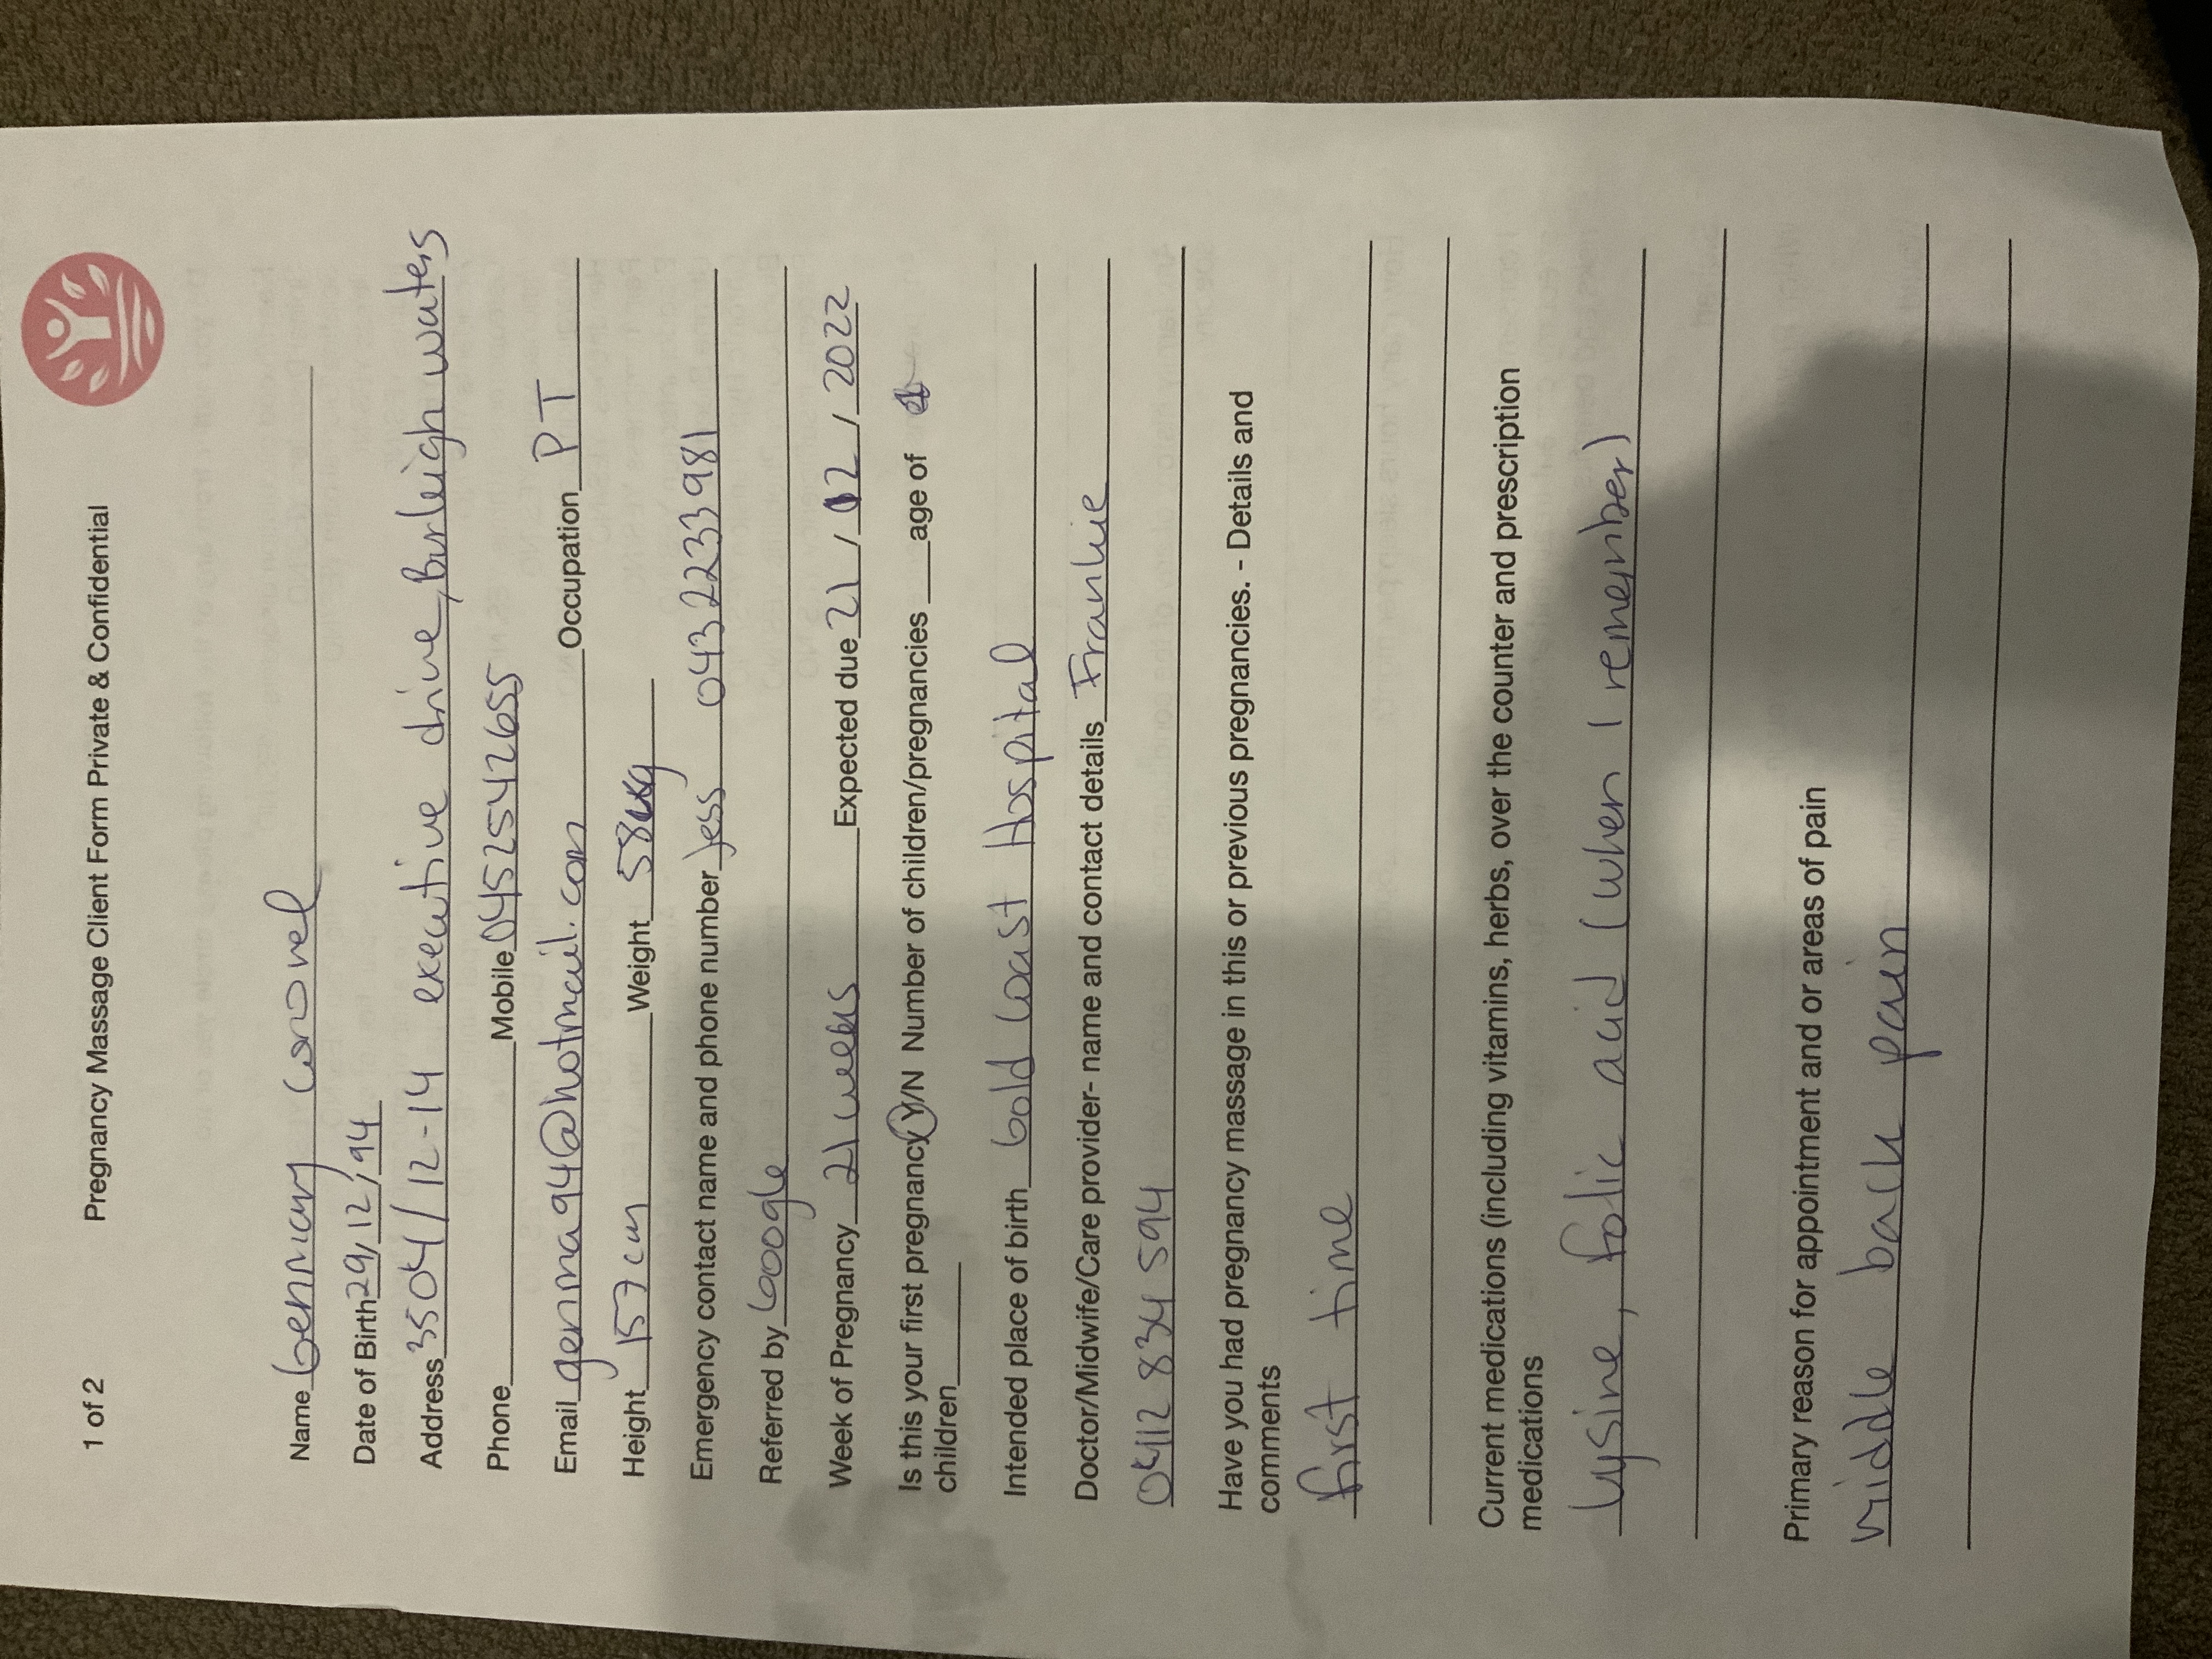 1 of 2 Pregnancy Massage Client Form Private & Confidential
Name
Date of Birth 29/12/94
Address 3504/12-14 executive drive, Burleigh waters
Phone Mobile 0452542655
Email gemma94@hotmail.com Occupation PT
Height 157cm Weight 58kg
Emergency contact name and phone number Jess 0432233981
Referred by Google
Week of Pregnancy 21 weeks Expected due 21/02/2022
Is this your first pregnancy Y/N Number of children/pregnancies ___age of
children
Intended place of birth Gold Coast Hospital
Doctor/Midwife/Care provider- name and contact details Frankie
0412 834 594
Have you had pregnancy massage in this or previous pregnancies. - Details and
comments
first time
Current medications (including vitamins, herbs, over the counter and prescription
medications
Lysine, folic acid (when I remember)
Primary reason for appointment and or areas of pain
middle back pain